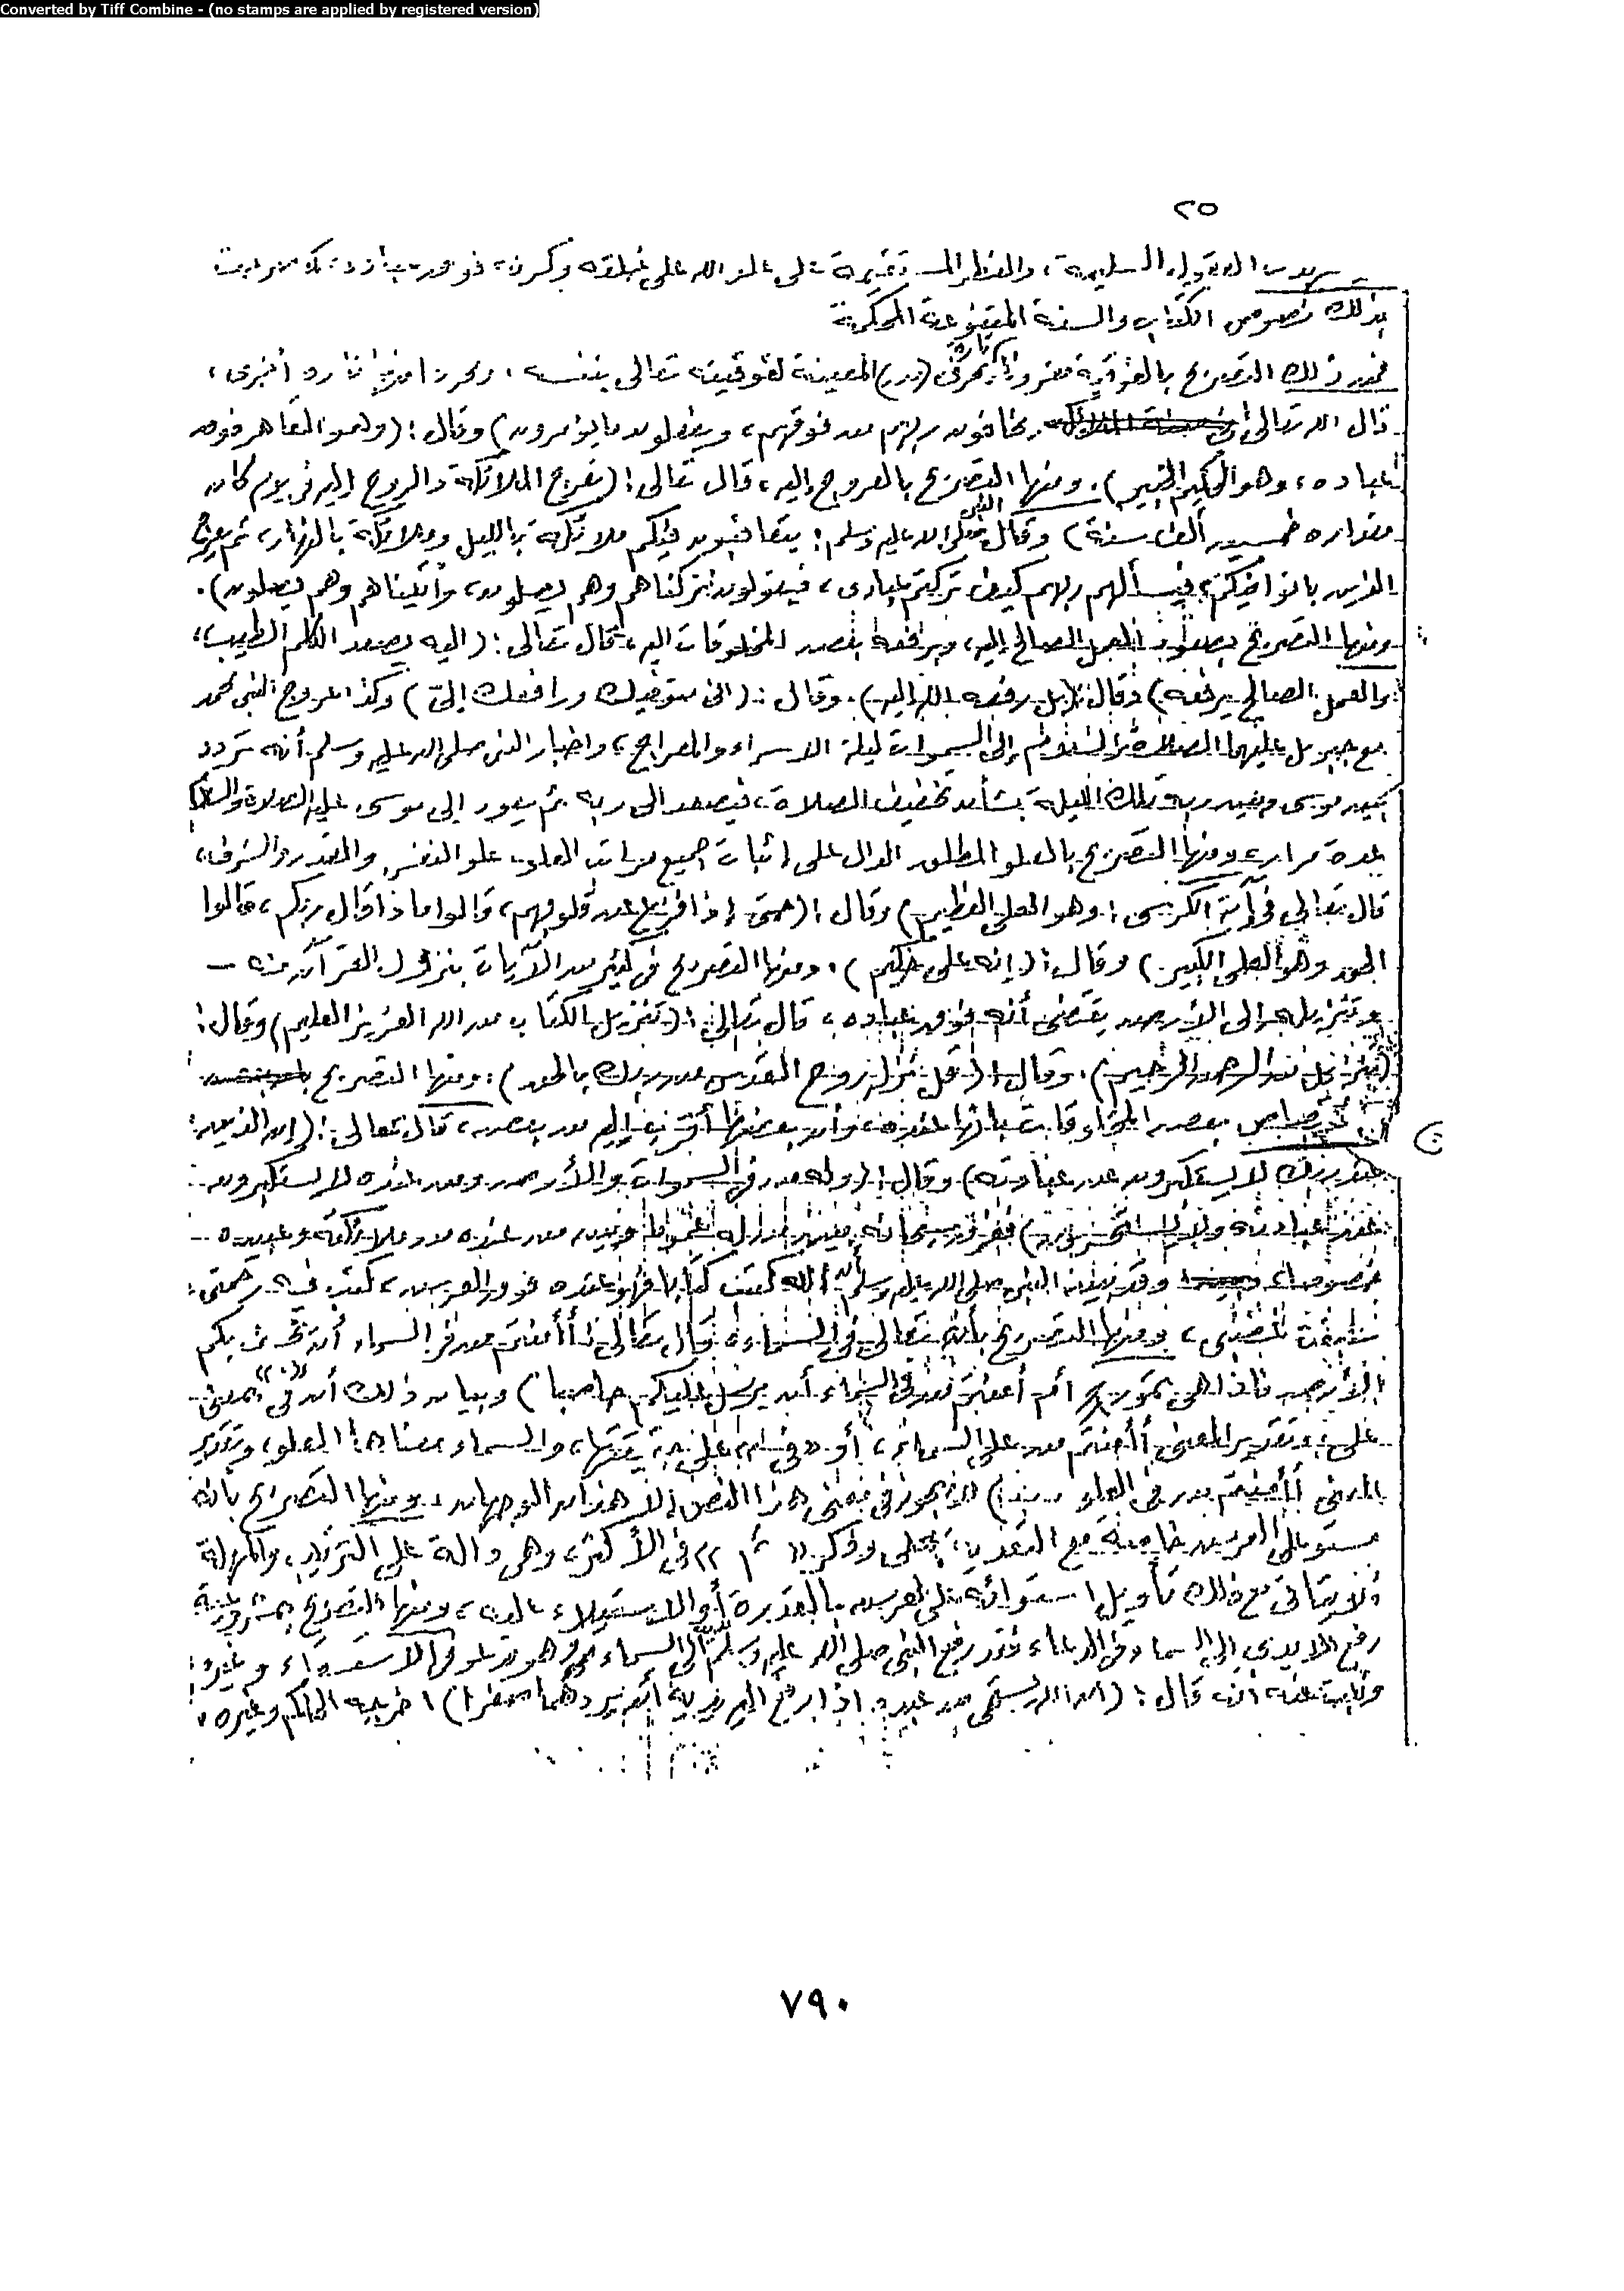 Converted by Tiff Combine - (no stamps are applied by registered version)
٢٥
العقول السليمة، والفطر المستقيمة على علو الله على خلقه وكونه فوق عباده، كما
بذلك نصوص الكتاب والسنة المتنوعة المحكمة
فمن ذلك التصريح بالفوقية مقرونة تارة بحرف (من) المعينة لفوقيته تعالى بنفسه، ومجردا منها تارة أخرى،
قال الله تعالى: يخافون ربهم من فوقهم، ويفعلون ما يؤمرون) وقال: (وهو القاهر فوق
عباده، وهو الحكيم الخبير). ومنها التصريح بالعروج إليه، قال تعالى: (تعرج الملائكة والروح إليه في يوم كان
مقداره خمسين ألف سنة) وقال النبي صلى الله عليه وسلم: يتعاقبون فيكم ملائكة بالليل وملائكة بالنهار، ثم يعرج
الذين باتوا فيكم، فيسألهم ربهم كيف تركتم عبادى، فيقولون تركناهم وهم يصلون، وأتيناهم وهم يصلون).
ومنها التصريح بصعود العمل الصالح إليه، وبرفعه بعض المخلوقات إليه، قال تعالى: (إليه يصعد الكلم الطيب،
والعمل الصالح يرفعه) وقال: (بل رفعه الله إليه). وقال: (انى متوفيك ورافعك إلىّ) وكذا عروج النبى محمد
مع جبريل عليهما الصلاة والسلام إلى السموات ليلة الاسراء والمعراج، واخبار النبى صلى الله عليه وسلم أنه تردد
بين موسى وبين ربه تلك الليلة بشأن تخفيف الصلاة، فيصعد إلى ربه ثم يعود إلى موسى عليه الصلاة والسلام
عدة مرات، ومنها التصريح بالعلو المطلق الدال على اثبات جميع مراتب العلو، علو النفس والقدر والشرف،
قال تعالى في آية الكرسى: وهو العلى العظيم) وقال: (حتى إذا فزع عن قلوبهم، قالوا ماذا قال ربكم، قالوا
الحق وهو العلى الكبير) وقال: (إنه على حكيم). ومنها التصريح في كثير من الآيات بنزول القرآن منه –
وتنزيله إلى الأرض يقتضى أنه فوق عباده، قال تعالى: (تنزيل الكتاب من الله العزيز العليم) وقال:
(تنزيل من الرحمن الرحيم). وقال: (قل نزله روح القدس من ربك بالحق). ومنها التصريح
بعض المخلوقات بأنها عنده، وأن بعضها أقرب إليه من بعض، قال تعالى: (إن الذين
عند ربك لا يستكبرون عن عبادته) وقال: (وله من في السموات والأرض ومن عنده لا يستكبرون
عن عبادته ولا يستحسرون) ففرق سبحانه بين من له عموما وبين من عنده من ملائكته وعبيده
خصوصا، وقد بين النبى صلى الله عليه وسلم أن الله كتب كتابا فهو عنده فوق العرش، كتب فيه رحمتى
سبقت غضبى، ومنها التصريح بأنه تعالى في السماء، قال تعالى: أأمنتم من في السماء أن يخسف بكم
الأرض فإذا هي تمور، أم أمنتم من في السماء أن يرسل عليكم حاصبا) وبيان ذلك أن «في» بمعنى
على، وتقدير المعنى أأمنتم من على السماء، أو «في» على حقيقتها، والسماء معناها العلو، وتقدير
المعنى أأمنتم من في العلو لا يجوز في معنى هذا النص إلا هذان الوجهان، ومنها التصريح بأنه
مستو على العرش خاصة مع التعدية بعلى وذكر «ثم» في الأكثر، وهي دالة على الترتيب والمهلة
ولا يتأتى مع ذلك تأويل استوائه على العرش بالقدرة أو الاستيلاء عليه، ومنها التصريح بمشروعية
رفع الأيدي إلى السماء في الدعاء، فقد رفع النبي صلى الله عليه وسلم يديه إلى السماء وهو يدعو في الاستسقاء وغيره
وثبت عنه أنه قال: (إن الله يستحي من عبده إذا رفع إليه يديه أن يردهما صفرا) اخرجه الحاكم وغيره،
٧٩٠